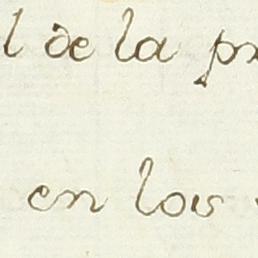 l de la pr
en los